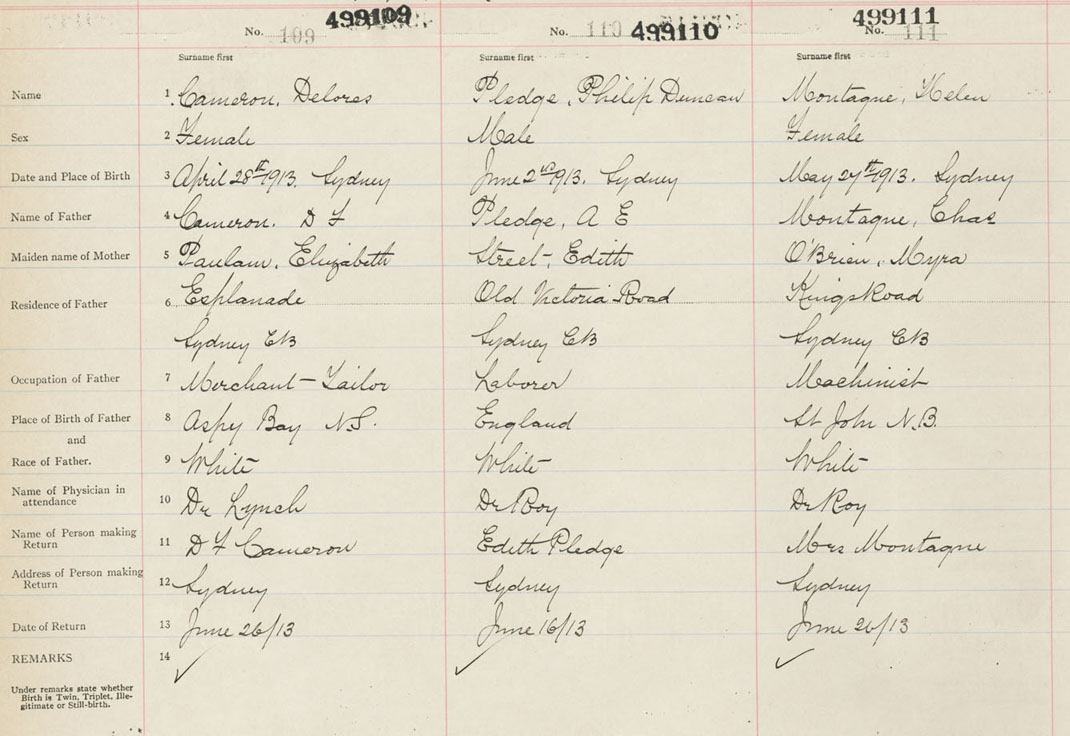 499109 499110 499111
No. 109 No. 110 No. 111
Surname first Surname first Surname first
Name 1 Cameron, Delores Pledge, Philip Duncan Montague, Helen
Sex 2 Female Male Female
Date and Place of Birth 3 April 28th 1913. Sydney June 2nd 1913. Sydney May 27th 1913. Sydney
Name of Father 4 Cameron. D F Pledge, A E Montague, Chas
Maiden name of Mother 5 Elizabeth Street, Edith O'Brien, Myra
Residence of Father 6 Esplanade Old Victoria Road Kings Road
Sydney CB Sydney CB Sydney CB
Occupation of Father 7 Merchant-Tailor Laborer Machinist
Place of Birth of Father 8 Aspy Bay N.S. England St John N.B.
and
Race of Father. 9 White White White
Name of Physician in 10 Dr Lynch Dr Roy Dr Roy
attendance
Name of Person making 11 D F Cameron Edith Pledge Mrs Montague
Return
Address of Person making 12 Sydney Sydney Sydney
Return
Date of Return 13 June 26/13 June 16/13 June 26/13
REMARKS 14
Under remarks state whether
Birth is Twin, Triplet, Ille-
gitimate or Still-birth.